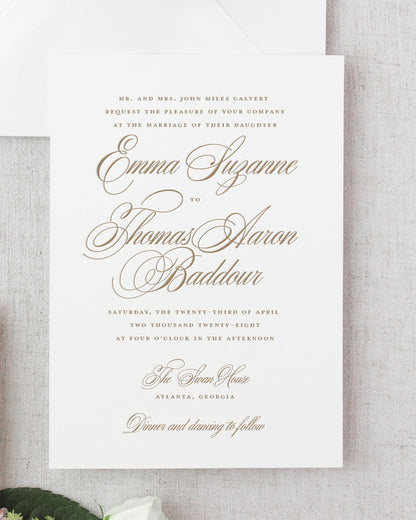 MR. AND MRS. JOHN MILES CALVERT
REQUEST THE PLEASURE OF YOUR COMPANY
AT THE MARRIAGE OF THEIR DAUGHTER
Emma Suzanne
TO
Thomas Aaron
Baddour
SATURDAY, THE TWENTY-THIRD OF APRIL
TWO THOUSAND TWENTY-EIGHT
AT FOUR O'CLOCK IN THE AFTERNOON
The Swan House
ATLANTA, GEORGIA
Dinner and dancing to follow